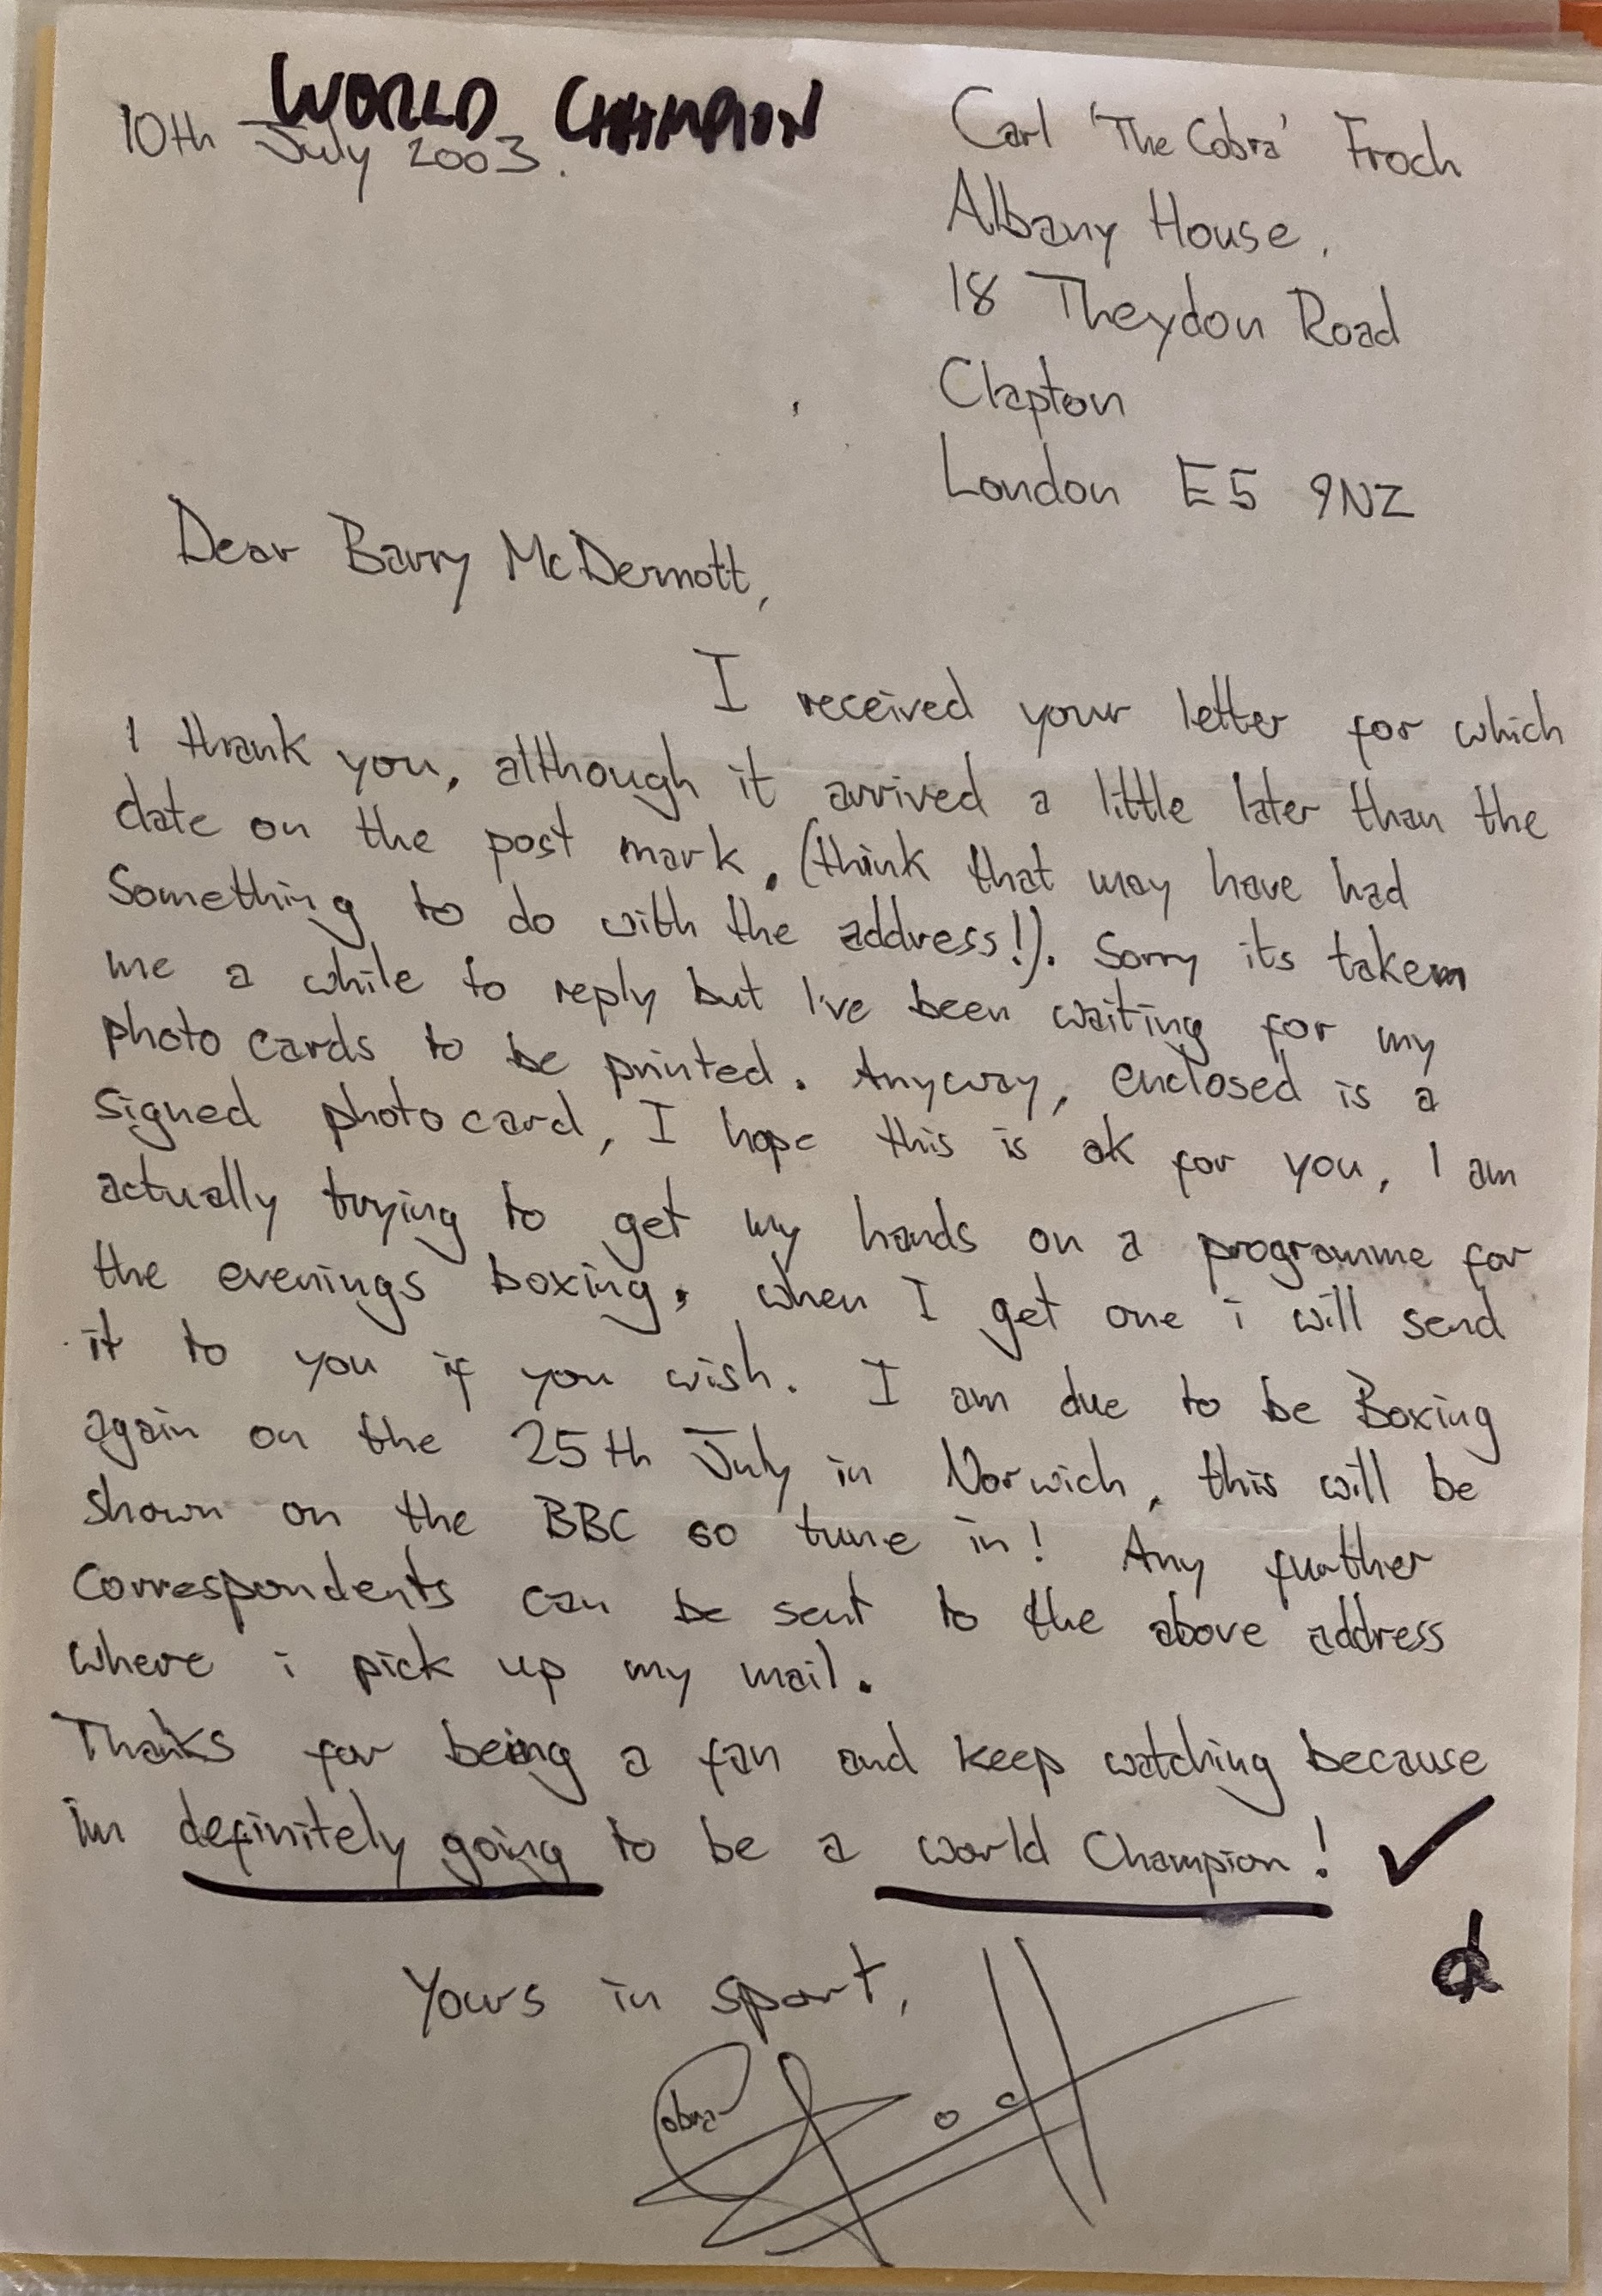 WORLD CHAMPION
10th July 2003.
Carl 'The Cobra' Froch
Albany House,
18 Theydon Road
Clapton
London E5 9NZ
Dear Barry McDermott,
I received your letter for which
I thank you, although it arrived a little later than the
date on the post mark. (think that may have had
Something to do with the address!). Sorry its taken
me a while to reply but I've been waiting for my
photo cards to be printed. Anyway, enclosed is a
signed photo card, I hope this is ok for you, I am
actually trying to get my hands on a programme for
the evenings boxing, when I get one i will send
it to you if you wish. I am due to be Boxing
again on the 25th July in Norwich, this will be
shown on the BBC so tune in! Any further
Correspondents can be sent to the above address
where i pick up my mail.
Thanks for being a fan and keep watching because
im definitely going to be a world Champion! ✓
Yours in sport,
Cobra Froch